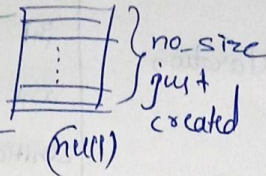 no_size
just
created
(null)